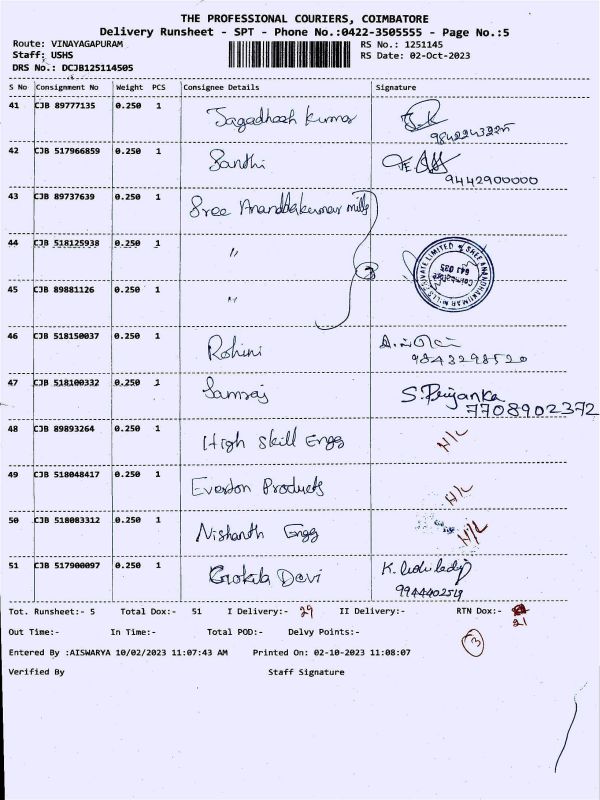 THE PROFESSIONAL COURIERS, COIMBATORE
Delivery Runsheet - SPT - Phone No.:0422-3505555 - Page No.:5
Route: VINAYAGAPURAM RS No.: 1251145
Staff: USHS RS Date: 02-Oct-2023
DRS No.: DCJB125114505
S No Consignment No Weight PCS Consignee Details Signature
41 CJB 89777135 0.250 1 Jagadheesh Kumar
42 CJB 517966859 0.250 1 Santhi
9442900000
43 CJB 89737639 0.250 1 Sree Ananddakumar mills
44 CJB 518125938 0.250 1 "
3
45 CJB 89881126 0.250 1 "
46 CJB 518150037 0.250 1 Rohini
9843298520
47 CJB 518100332 0.250 1 Samraj S. Priyanka
7708902372
48 CJB 89893264 0.250 1 High Skill Engg N/L
49 CJB 518048417 0.250 1 Everton Products N/L
50 CJB 518083312 0.250 1 Nishanth Engg N/L
51 CJB 517900097 0.250 1 Gokila Devi
9944402519
Tot. Runsheet:- 5 Total Dox:- 51 I Delivery:- 29 II Delivery:- RTN Dox:- 21
Out Time:- In Time:- Total POD:- Delvy Points:-
3
Entered By :AISWARYA 10/02/2023 11:07:43 AM Printed On: 02-10-2023 11:08:07
Verified By Staff Signature